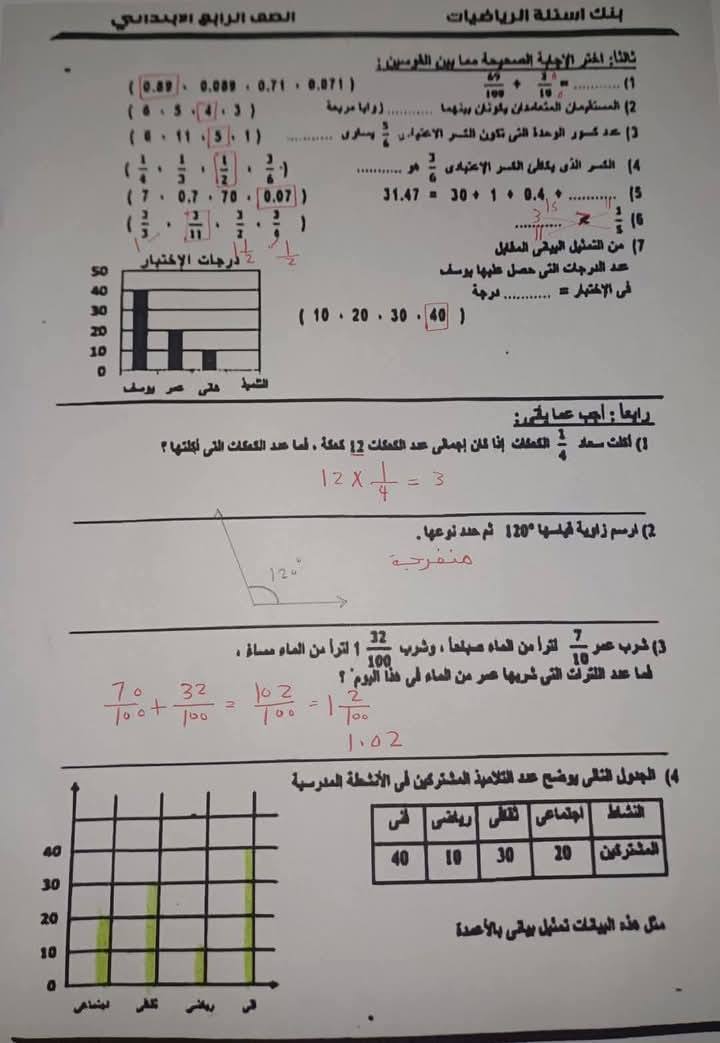 بنك اسئلة الرياضيات    الصف الرابع الابتدائي
ثالثا: اختر الإجابة الصحيحة مما بين القوسين :
1) ............ = 3/10 + 69/100 ( 0.89 ، 0.089 ، 0.71 ، 0.071 )
2) المستقيمان المتعامدان يكونان بينهما .......... زوايا مربعة ( 6 ، 5 ، 4 ، 3 )
3) عدد كسور الوحدة التى تكون الكسر الاعتيادى 5/6 يساوى .......... ( 6 ، 11 ، 5 ، 1 )
4) الكسر الذى يكافئ الكسر الاعتيادى 3/6 هو .......... ( 1/4 ، 1/3 ، 1/2 ، 3/6 )
5) 31.47 = 30 + 1 + 0.4 + .......... ( 7 ، 0.7 ، 70 ، 0.07 )
6) 1/5 > .......... ( 3/3 ، 3/11 ، 3/2 ، 3/4 )
3 15 11
11
1 1 1/2 1/2
7) من التمثيل البيانى المقابل
عدد الدرجات التى حصل عليها يوسف
فى الإختبار = .......... درجة
( 10 ، 20 ، 30 ، 40 )
درجات الإختبار
50
40
30
20
10
0
يوسف عمر هانى التلميذ
رابعا : أجب عما يأتى :
1) أكلت سعاد 1/4 الكعكات إذا كان إجمالى عدد الكعكات 12 كعكة ، فما عدد الكعكات التى أكلتها ؟
12 × 1/4 = 3
2) ارسم زاوية قياسها 120° ثم حدد نوعها .
منفرجة
120°
3) شرب عمر 7/10 لترا من الماء صباحا ، وشرب 1 32/100 لترا من الماء مساء ،
فما عدد اللترات التى شربها عمر من الماء فى هذا اليوم ؟
70/100 + 32/100 = 102/100 = 1 2/100
1.02
4) الجدول التالى يوضح عدد التلاميذ المشتركين فى الأنشطة المدرسية
النشاط اجتماعى ثقافى رياضى فنى
المشتركين 20 30 10 40
مثل هذه البيانات تمثيل بيانى بالأعمدة
40
30
20
10
0
اجتماعى ثقافى رياضى فنى